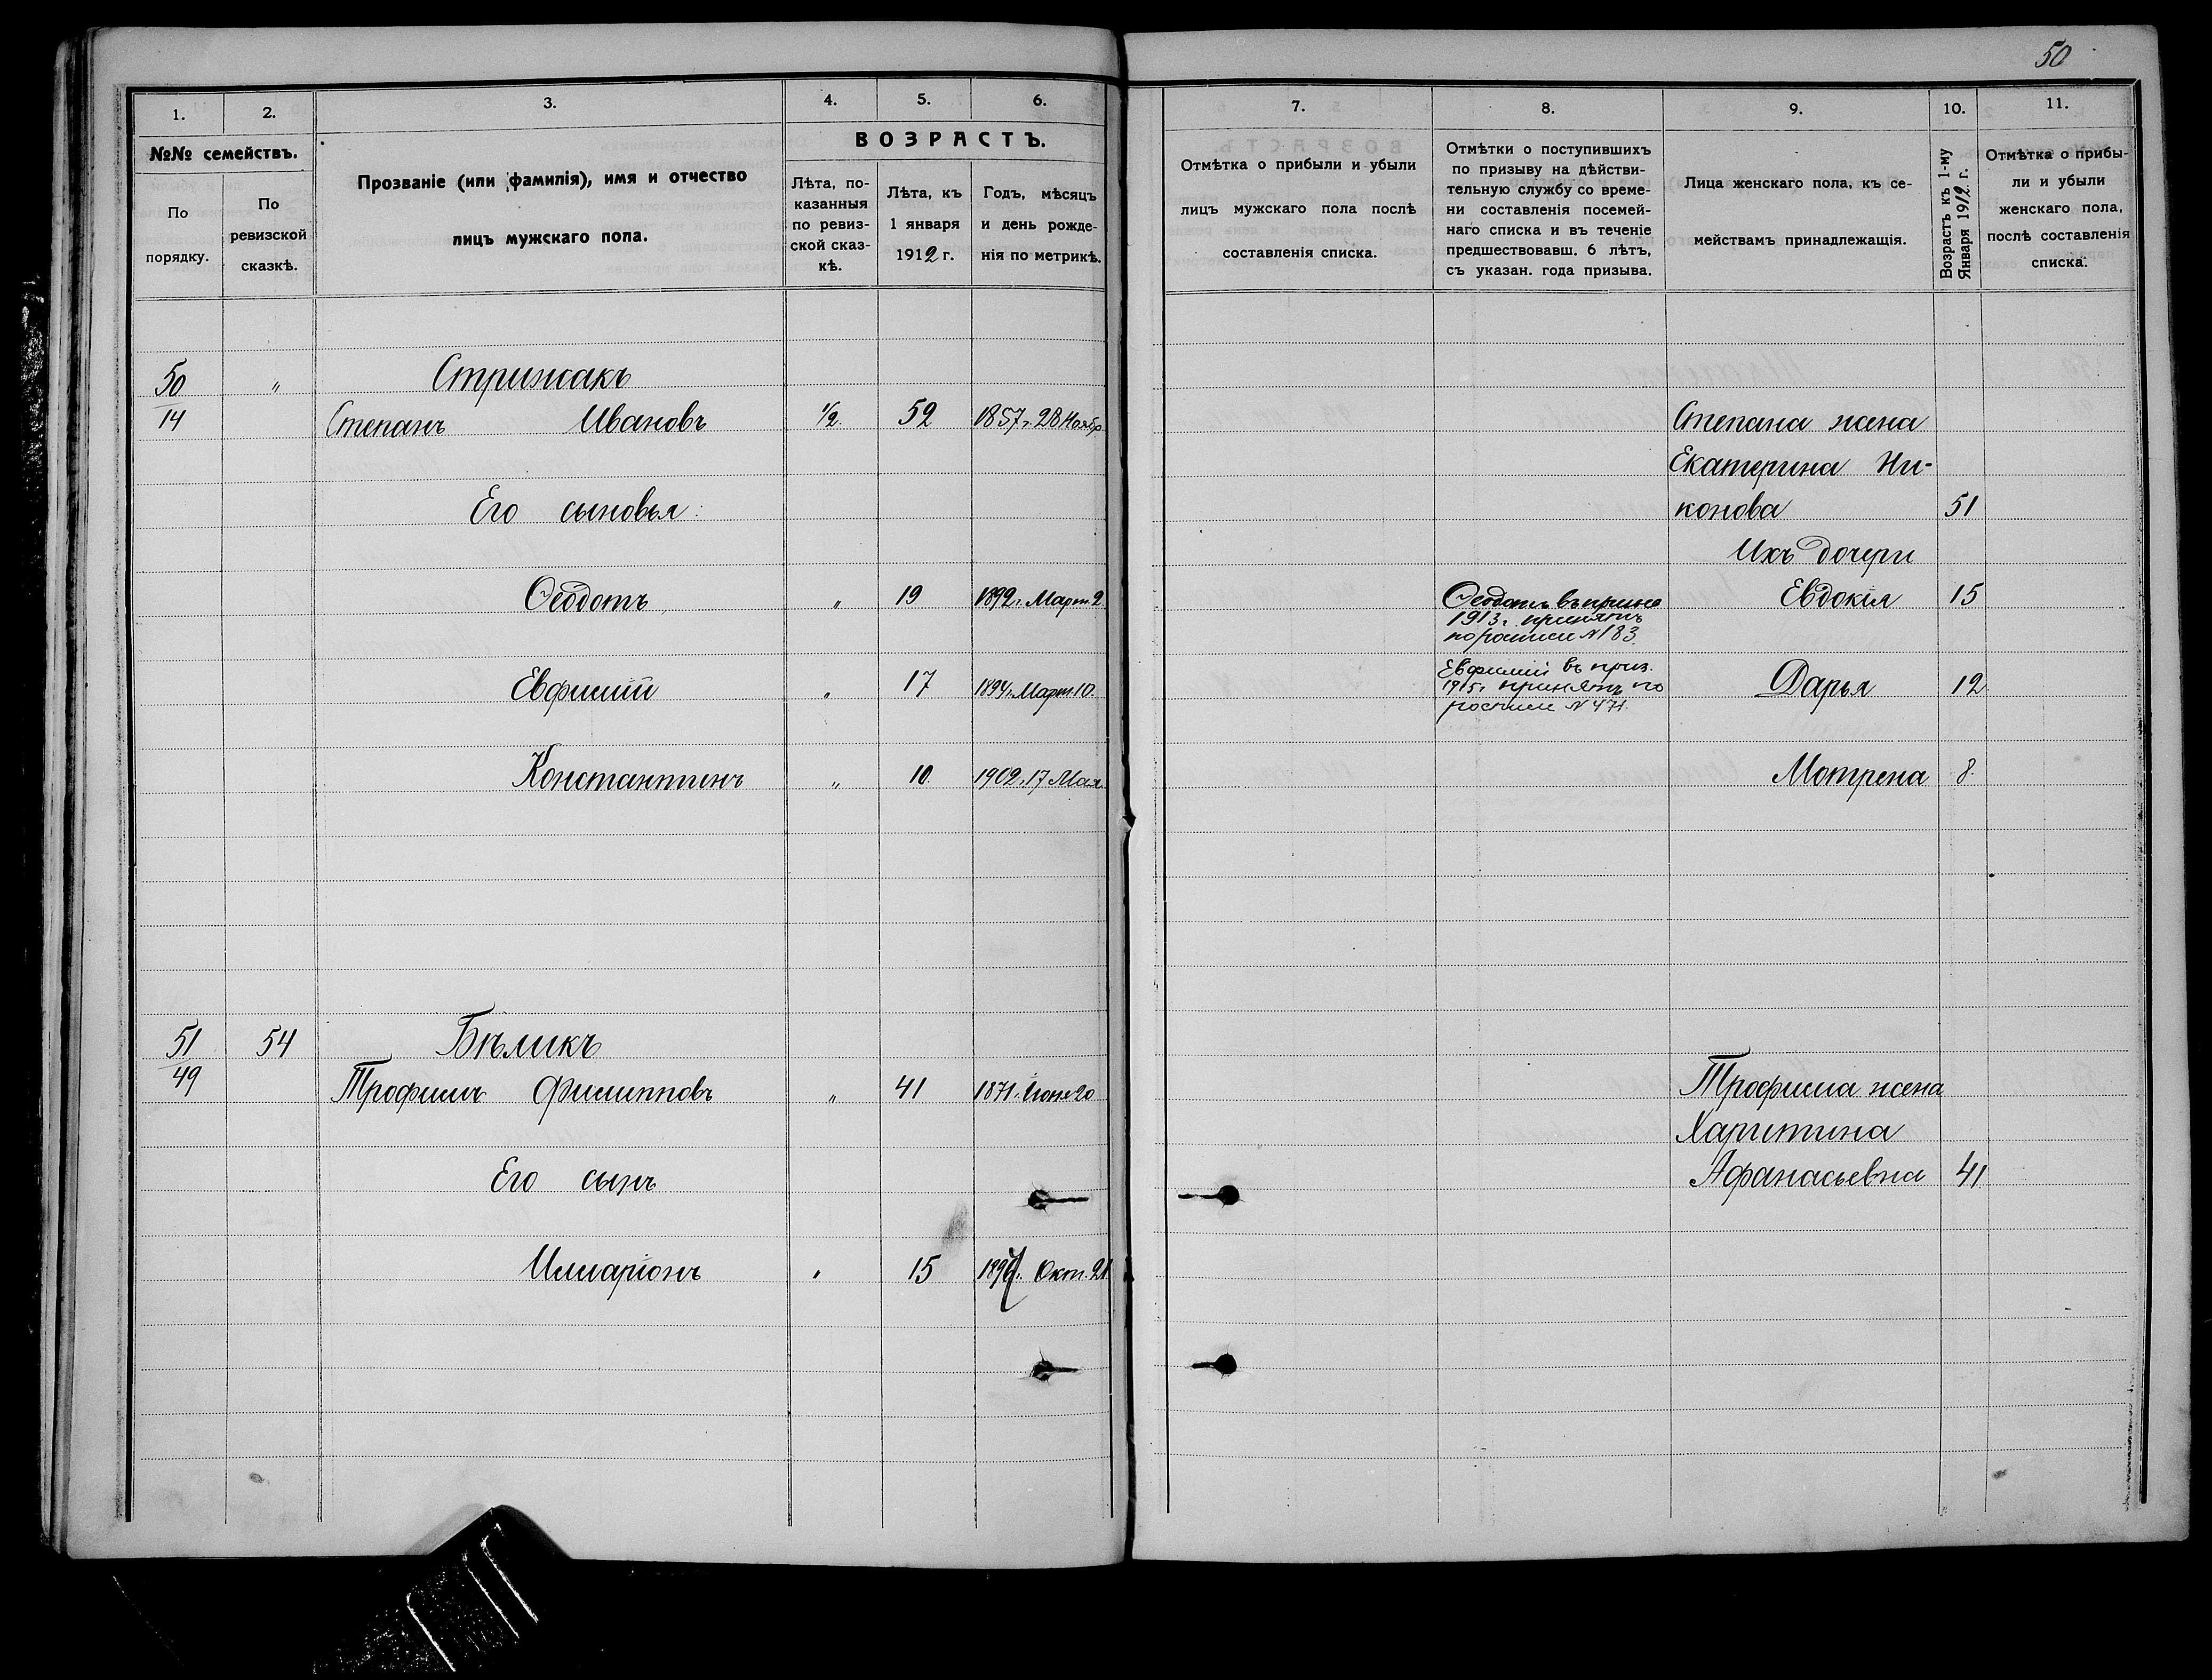 50
1.
2.
3.
4.
5.
6.
№№ семействъ.
По порядку.
По ревизской сказкѣ.
Прозваніе (или фамилія), имя и отчество
лицъ мужскаго пола.
ВОЗРАСТЪ.
Лѣта, по-
казанныя
по ревиз-
ской сказ-
кѣ.
Лѣта, къ
1 января
1912 г.
Годъ, мѣсяцъ
и день рожде-
нія по метрикѣ.
7.
8.
9.
10.
11.
Отмѣтка о прибыли и убыли
лицъ мужскаго пола послѣ
составленія списка.
Отмѣтки о поступившихъ
по призыву на дѣйстви-
тельную службу со време-
ни составленія посемей-
наго списка и въ теченіе
предшествовавш. 6 лѣтъ,
съ указан. года призыва.
Лица женскаго пола, къ се-
мействамъ принадлежащія.
Возрастъ къ 1-му
Января 1912 г.
Отмѣтка о прибы-
ли и убыли
женскаго пола,
послѣ составленія
списка.
50 " Стрижакъ
14 Степанъ Ивановъ 1/2. 52 1857 г. 28 Ноябр.
Его сыновья:
Ѳеодотъ " 19 1892 г. Март. 2
Евфимій " 17 1894 г. Март. 10.
Константинъ " 10. 1902 г. 17 Мая
51 54 Бѣликъ
49 Трофимъ Филипповъ " 41 1871 г. Іюня 20
Его сынъ
Илларіонъ " 15 Окт. 21
Степана жена
Екатерина Ни-
конова 51
Ихъ дочери
Евдокія 15
Дарья 12
Мотрена 8.
Ѳеодотъ въ
1913 г. принятъ
по росписи № 183.
Евфимій въ приз.
1915 г. принятъ по
росписи № 471.
Трофима жена
Харитина
Афанасьевна 41